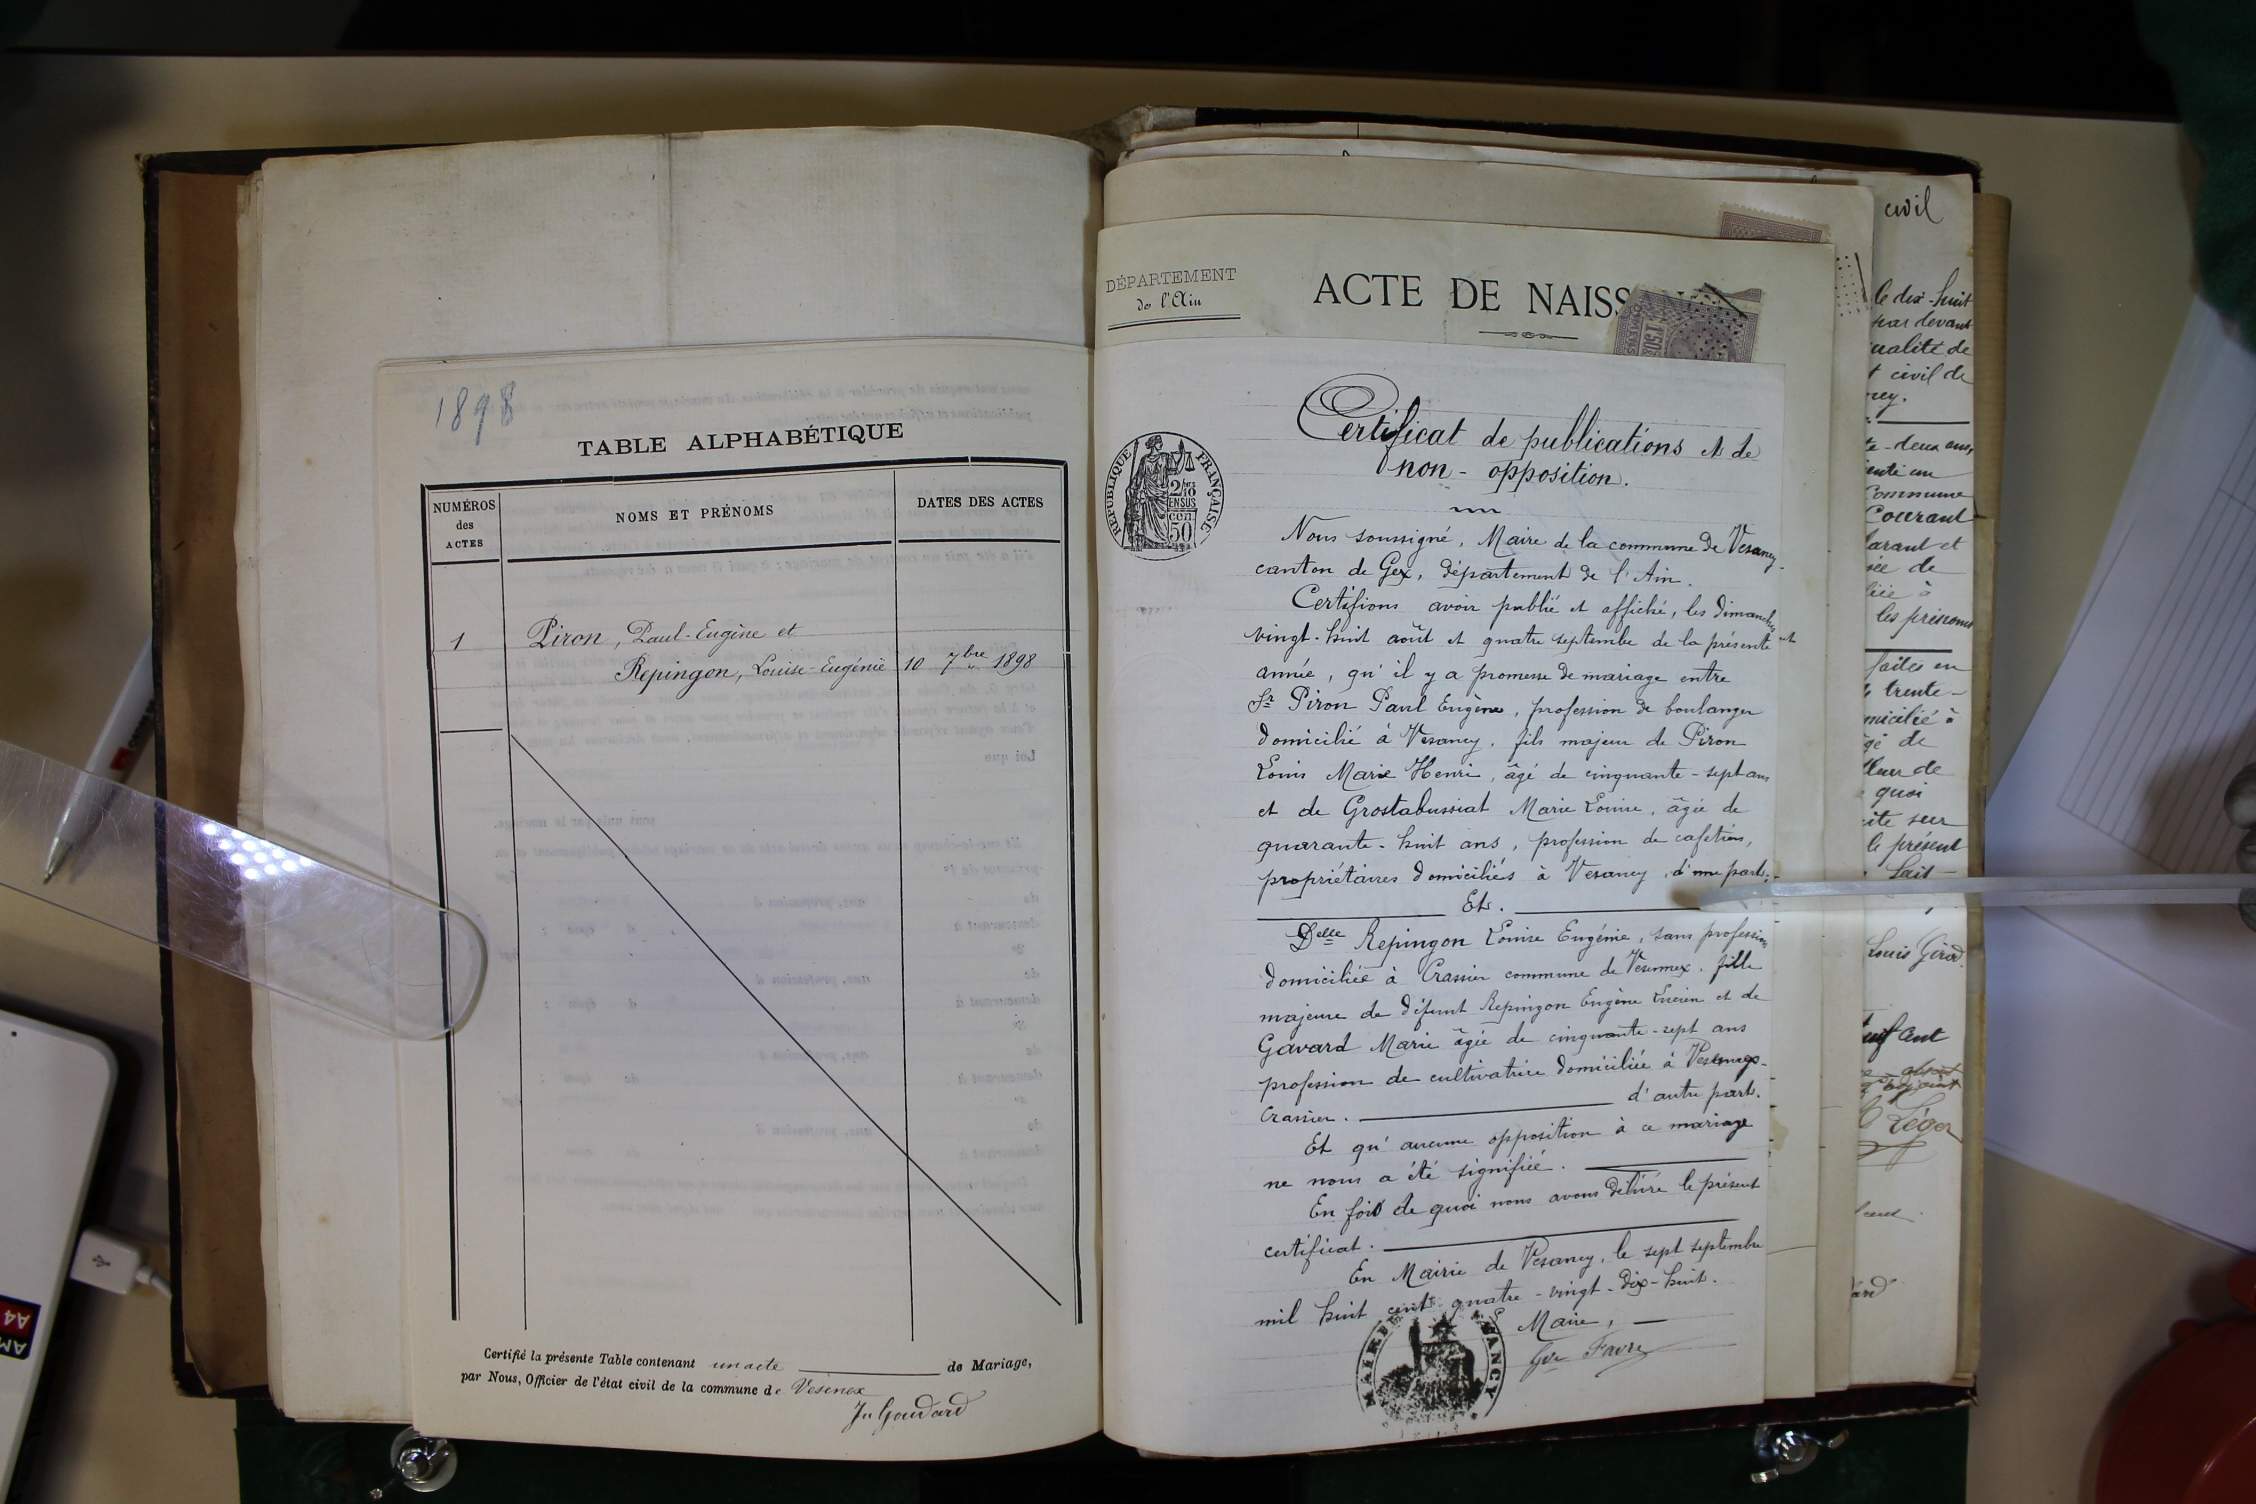 1898
TABLE ALPHABÉTIQUE
NUMÉROS
des
ACTES
NOMS ET PRÉNOMS
DATES DES ACTES
1
Piron, Paul-Eugène et
Repingon, Louise-Eugénie
10 7bre 1898
Certifié la présente Table contenant un acte de Mariage,
par Nous, Officier de l'état civil de la commune de Vesenex
Jn Goudard
DÉPARTEMENT
de l'Ain
ACTE DE NAISS
RÉPUBLIQUE FRANÇAISE
2/10
EN SUS
50
Certificat de publications et de
non-opposition.
Nous soussigné, Maire de la commune de Vesancy
canton de Gex, département de l'Ain.
Certifions avoir publié et affiché, les dimanches
vingt-huit août et quatre septembre de la présente
année, qu'il y a promesse de mariage entre
Sr Piron Paul Eugène, profession de boulanger
domicilié à Vesancy, fils majeur de Piron
Louis Marie Henri, âgé de cinquante-sept ans
et de Grostabussiat Marie Louise, âgée de
quarante-huit ans, profession de cafetiers,
propriétaires domiciliés à Vesancy, d'une part;
Et.
Delle Repingon Louise Eugénie, sans profession
domiciliée à Crassier commune de Vesennex, fille
majeure de défunt Repingon Eugène Lucien et de
Gavard Marie âgée de cinquante-sept ans
profession de cultivatrice domiciliée à Vesenex-
Crassier. d'autre part.
Et qu'aucune opposition à ce mariage
ne nous a été signifiée.
En foi de quoi nous avons délivré le présent
certificat.
En Mairie de Vesancy, le sept septembre
mil huit cent quatre-vingt-dix-huit.
Maire,
Favre
MAIRIE
civil
le dix-huit
par devant
qualité de
civil de
te-deux ans,
commune
Courant
les prénoms
faites en
trente-
micilié à
gé de
quoi
le présent
Louis Girod
Léger